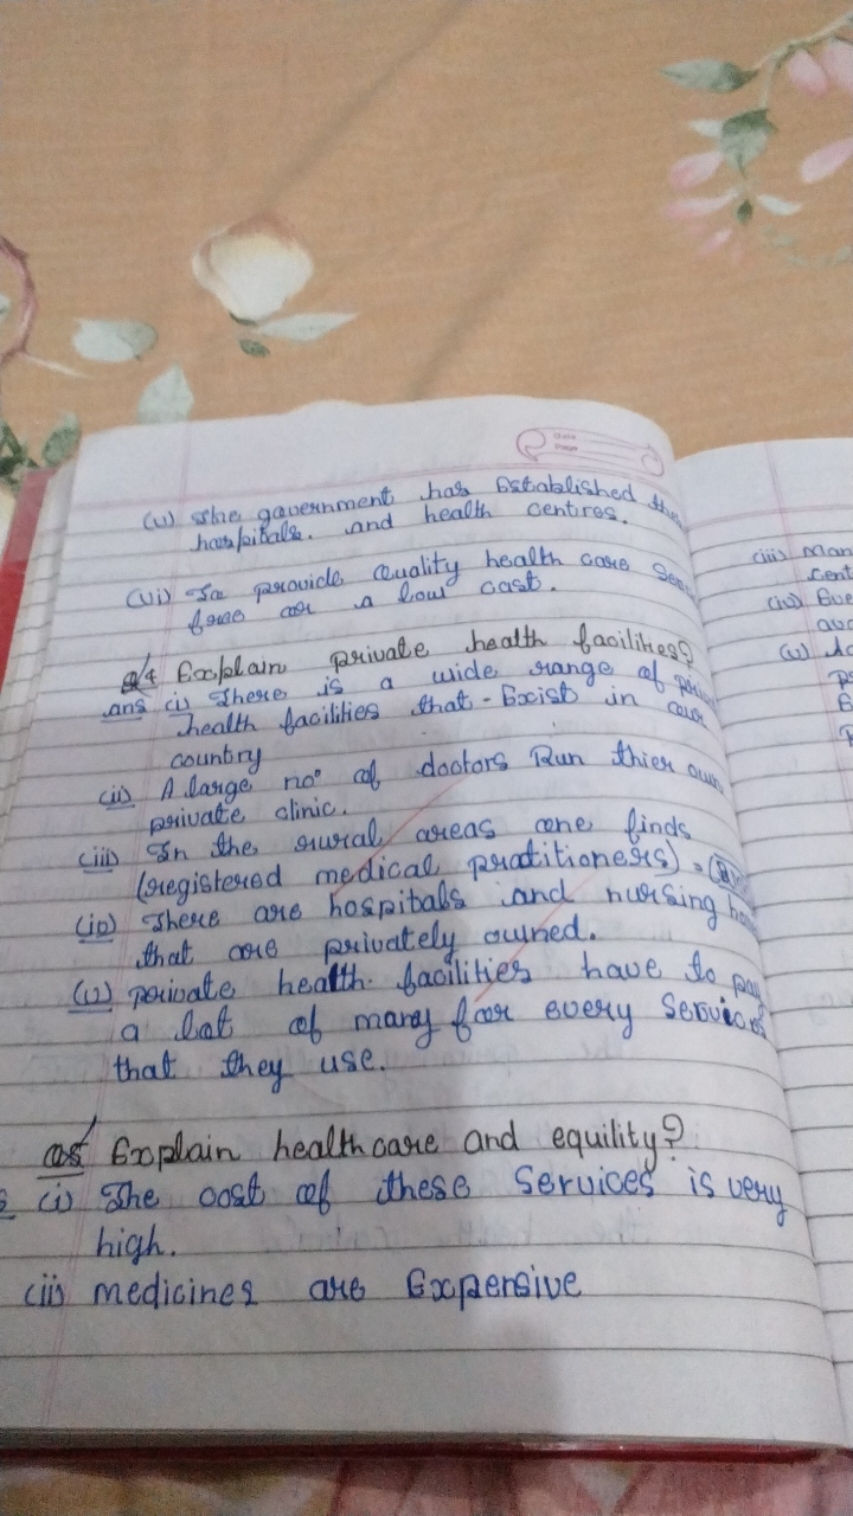 Date
Page
(v) The government has Established the
hospitals. and health centres.
(vi) To provide Quality health care
free or a low cost.
Q4 Explain private health facilities?
ans (i) There is a wide range of
health facilities that - Exist in our
country
(ii) A large no° of doctors Run thier own
private clinic.
(iii) In the rural areas one finds
(registered medical pratitioners).
(iv) There are hospitals and nursing
that are privately owned.
(v) private health. facilities have to pay
a lot of many for every services
that they use.
Q5 Explain healthcare and equility?
(i) The cost of these services is very
high.
(ii) medicines are Expensive
(iii) Man
cent
(iv) Eve
(v)